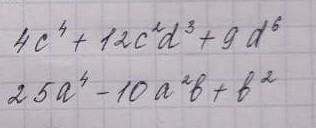 4c⁴ + 12c²d³ + 9d⁶
25a⁴ - 10a²b + b²